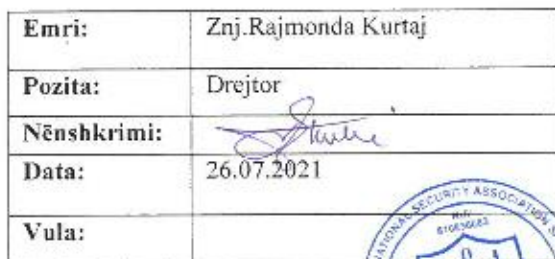 Emri: Znj.Rajmonda Kurtaj
Pozita: Drejtor
Nënshkrimi:
Data: 26.07.2021
Vula:
NATIONAL SECURITY ASSOCIATION